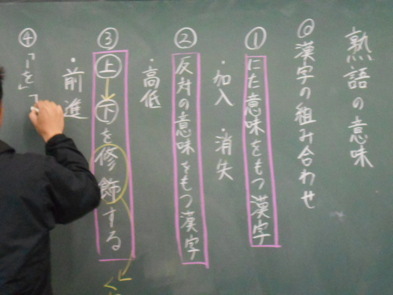 熟語の意味
◎漢字の組み合わせ
①にた意味をもつ漢字
・加入・消失
②反対の意味をもつ漢字
・高低
③上下を修飾する
・前進
④「―を」